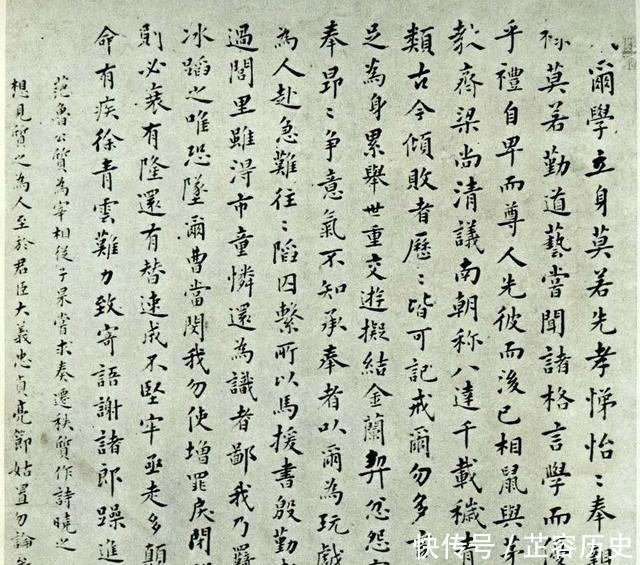 爾學立身莫若先孝悌怡〻奉親
祿莫若勤道藝嘗聞諸格言學而優
乎禮自卑而尊人先彼而後己相鼠與茅
教齊梁尚清議南朝称八達千載穢青
類古今傾敗者歷〻皆可記戒爾勿多言
足為身累舉世重交遊擬結金蘭契忿怨
奉昂〻争意氣不知承奉者以爾為玩戲
為人赴急難往〻陷囚繫所以馬援書殷勤
過閭里雖得市童憐還為識者鄙我乃羈
冰蹈之唯恐墜爾曹當閔我勿使增罪戾閉
則必衰有隆還有替速成不堅牢亟走多顛
命有疾徐青雲難力致寄語謝諸郎躁進
范魯公質為宰相從子杲嘗求奏遷秩質作詩曉之
想見質之為人至於君臣大義忠貞亮節姑置勿論
快传号 / 芷容历史